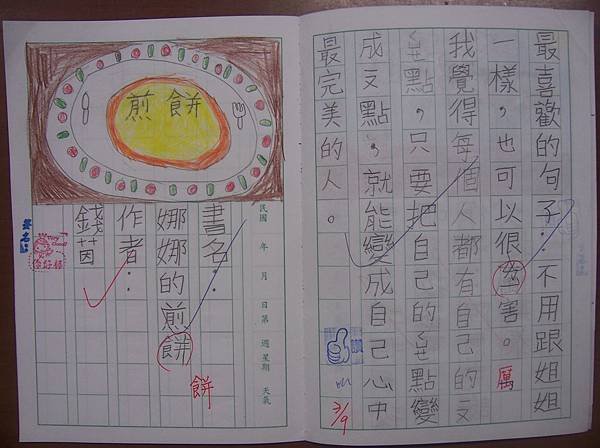 最喜歡的句子：不用跟姐姐
一樣，也可以很厲害。
厲
我覺得每個人都有自己的ㄧㄡ
ㄑㄩㄝ點，只要把自己的ㄑㄩㄝ點變
成ㄧㄡ點，就能變成自己心中
最完美的人。
3/9
煎餅
民國 年 月 日第 週 星期 天氣
書名：
娜娜的煎餅
餅
作者：
錢茵
你好棒